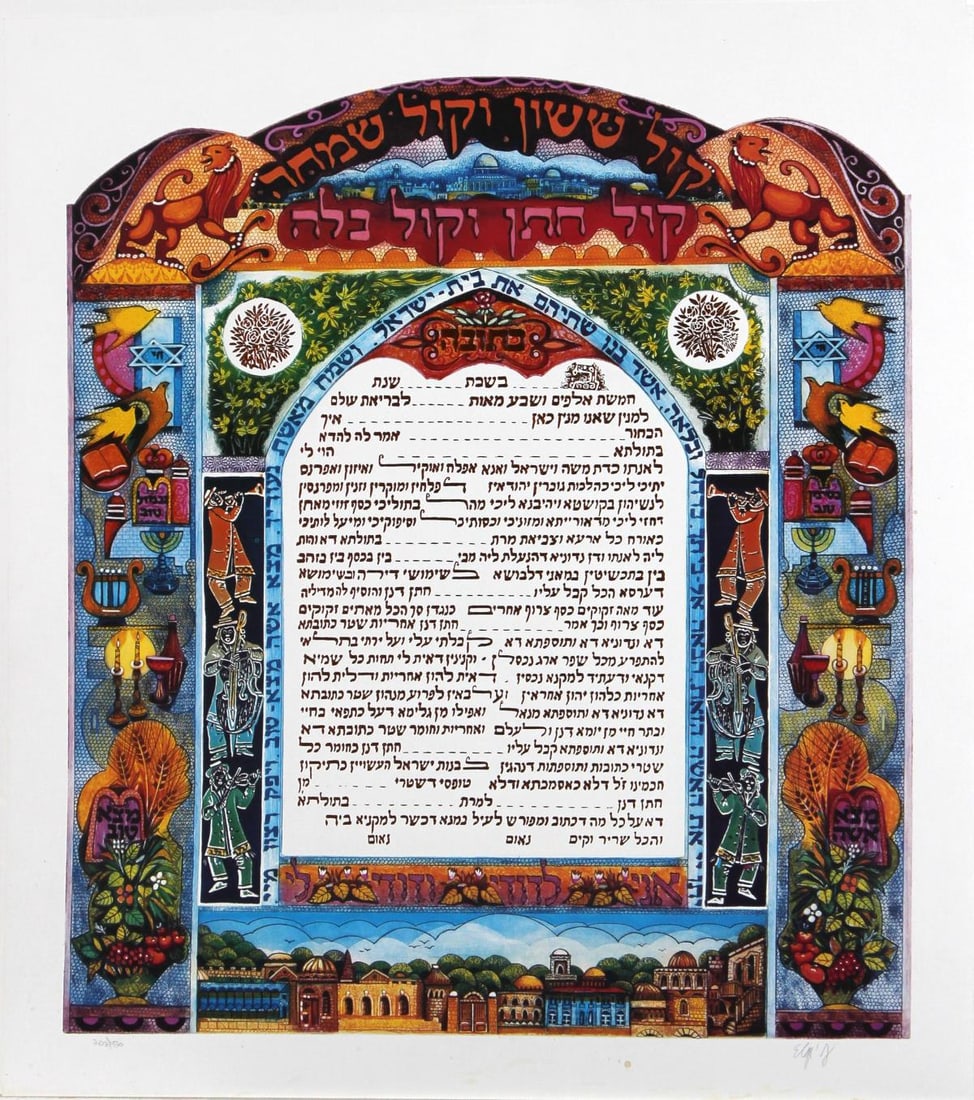 קול ששון וקול שמחה
קול חתן וקול כלה
כתובה
בשבת שנת
חמשת אלפים ושבע מאות לבריאת עולם
למנין שאנו מנין כאן איך
הבחור אמר לה להדא
בתולתא הוי לי
לאנתו כדת משה וישראל ואנא אפלח ואוקיר ואיזון ואפרנס
יתיכי ליכי כהלכות גוברין יהודאין דפלחין ומוקרין וזנין ומפרנסין
לנשיהון בקושטא ויהיבנא ליכי מהר בתוליכי כסף זוזי מאתן
דחזי ליכי מדאורייתא ומזוניכי וכסותיכי וסיפוקיכי ומיעל לותיכי
כאורח כל ארעא וצביאת מרת בתולתא דא והות
ליה לאנתו ודן נדוניא דהנעלת ליה מבי בין בכסף בין בזהב
בין בתכשיטין במאני דלבושא בשימושי דירה ובשימושא
דערסא הכל קבל עליו חתן דנן והוסיף להמדיליה
עוד מאה זקוקים כסף צרוף אחרים כנגדן סך הכל מאתים זקוקים
כסף צרוף וכך אמר חתן דנן אחריות שטר כתובתא
דא ונדוניא דא ותוספתא דא קבלתי עלי ועל ירתי בתראי
להתפרע מכל שפר ארג נכסין וקנינין דאית לי תחות כל שמיא
דקנאי ודעתיד למקנא נכסין דאית להון אחריות ודלית להון
אחריות כלהון יהון אחראין וערבאין לפרוע מנהון שטר כתובתא
דא נדוניא דא ותוספתא מנאי ואפילו מן גלימא דעל כתפאי בחיי
ובתר חיי מן יומא דנן ולעלם ואחריות וחומר שטר כתובתא דא
ונדוניא דא ותוספתא קבל עליו חתן דנן כחומר כל
שטרי כתובות ותוספתות דנהגין בבנות ישראל העשויין כתיקון
חכמינו זל דלא כאסמכתא ודלא טופסי דשטרי מן
חתן דנן למרת בתולתא
דא על כל מה דכתוב ומפורש לעיל במנא דכשר למקניא ביה
והכל שריר וקים נאום נאום
אני לדודי ודודי לי
מצא אשה
מצא טוב
בסימן טוב
במזל טוב
חי
חי